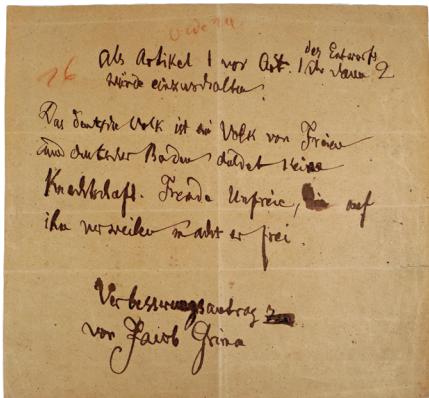 des Entwurfs
als Artikel 1 vor Art. 1 der dann 2
würde einzuschalten:
Das deutsche Volk ist ein Volk von Freien
und deutscher Boden duldet keine
Knechtschaft. Fremde Unfreie, die auf
ihm verweilen macht er frei.
Verbesserungsantrag
von Jacob Grimm